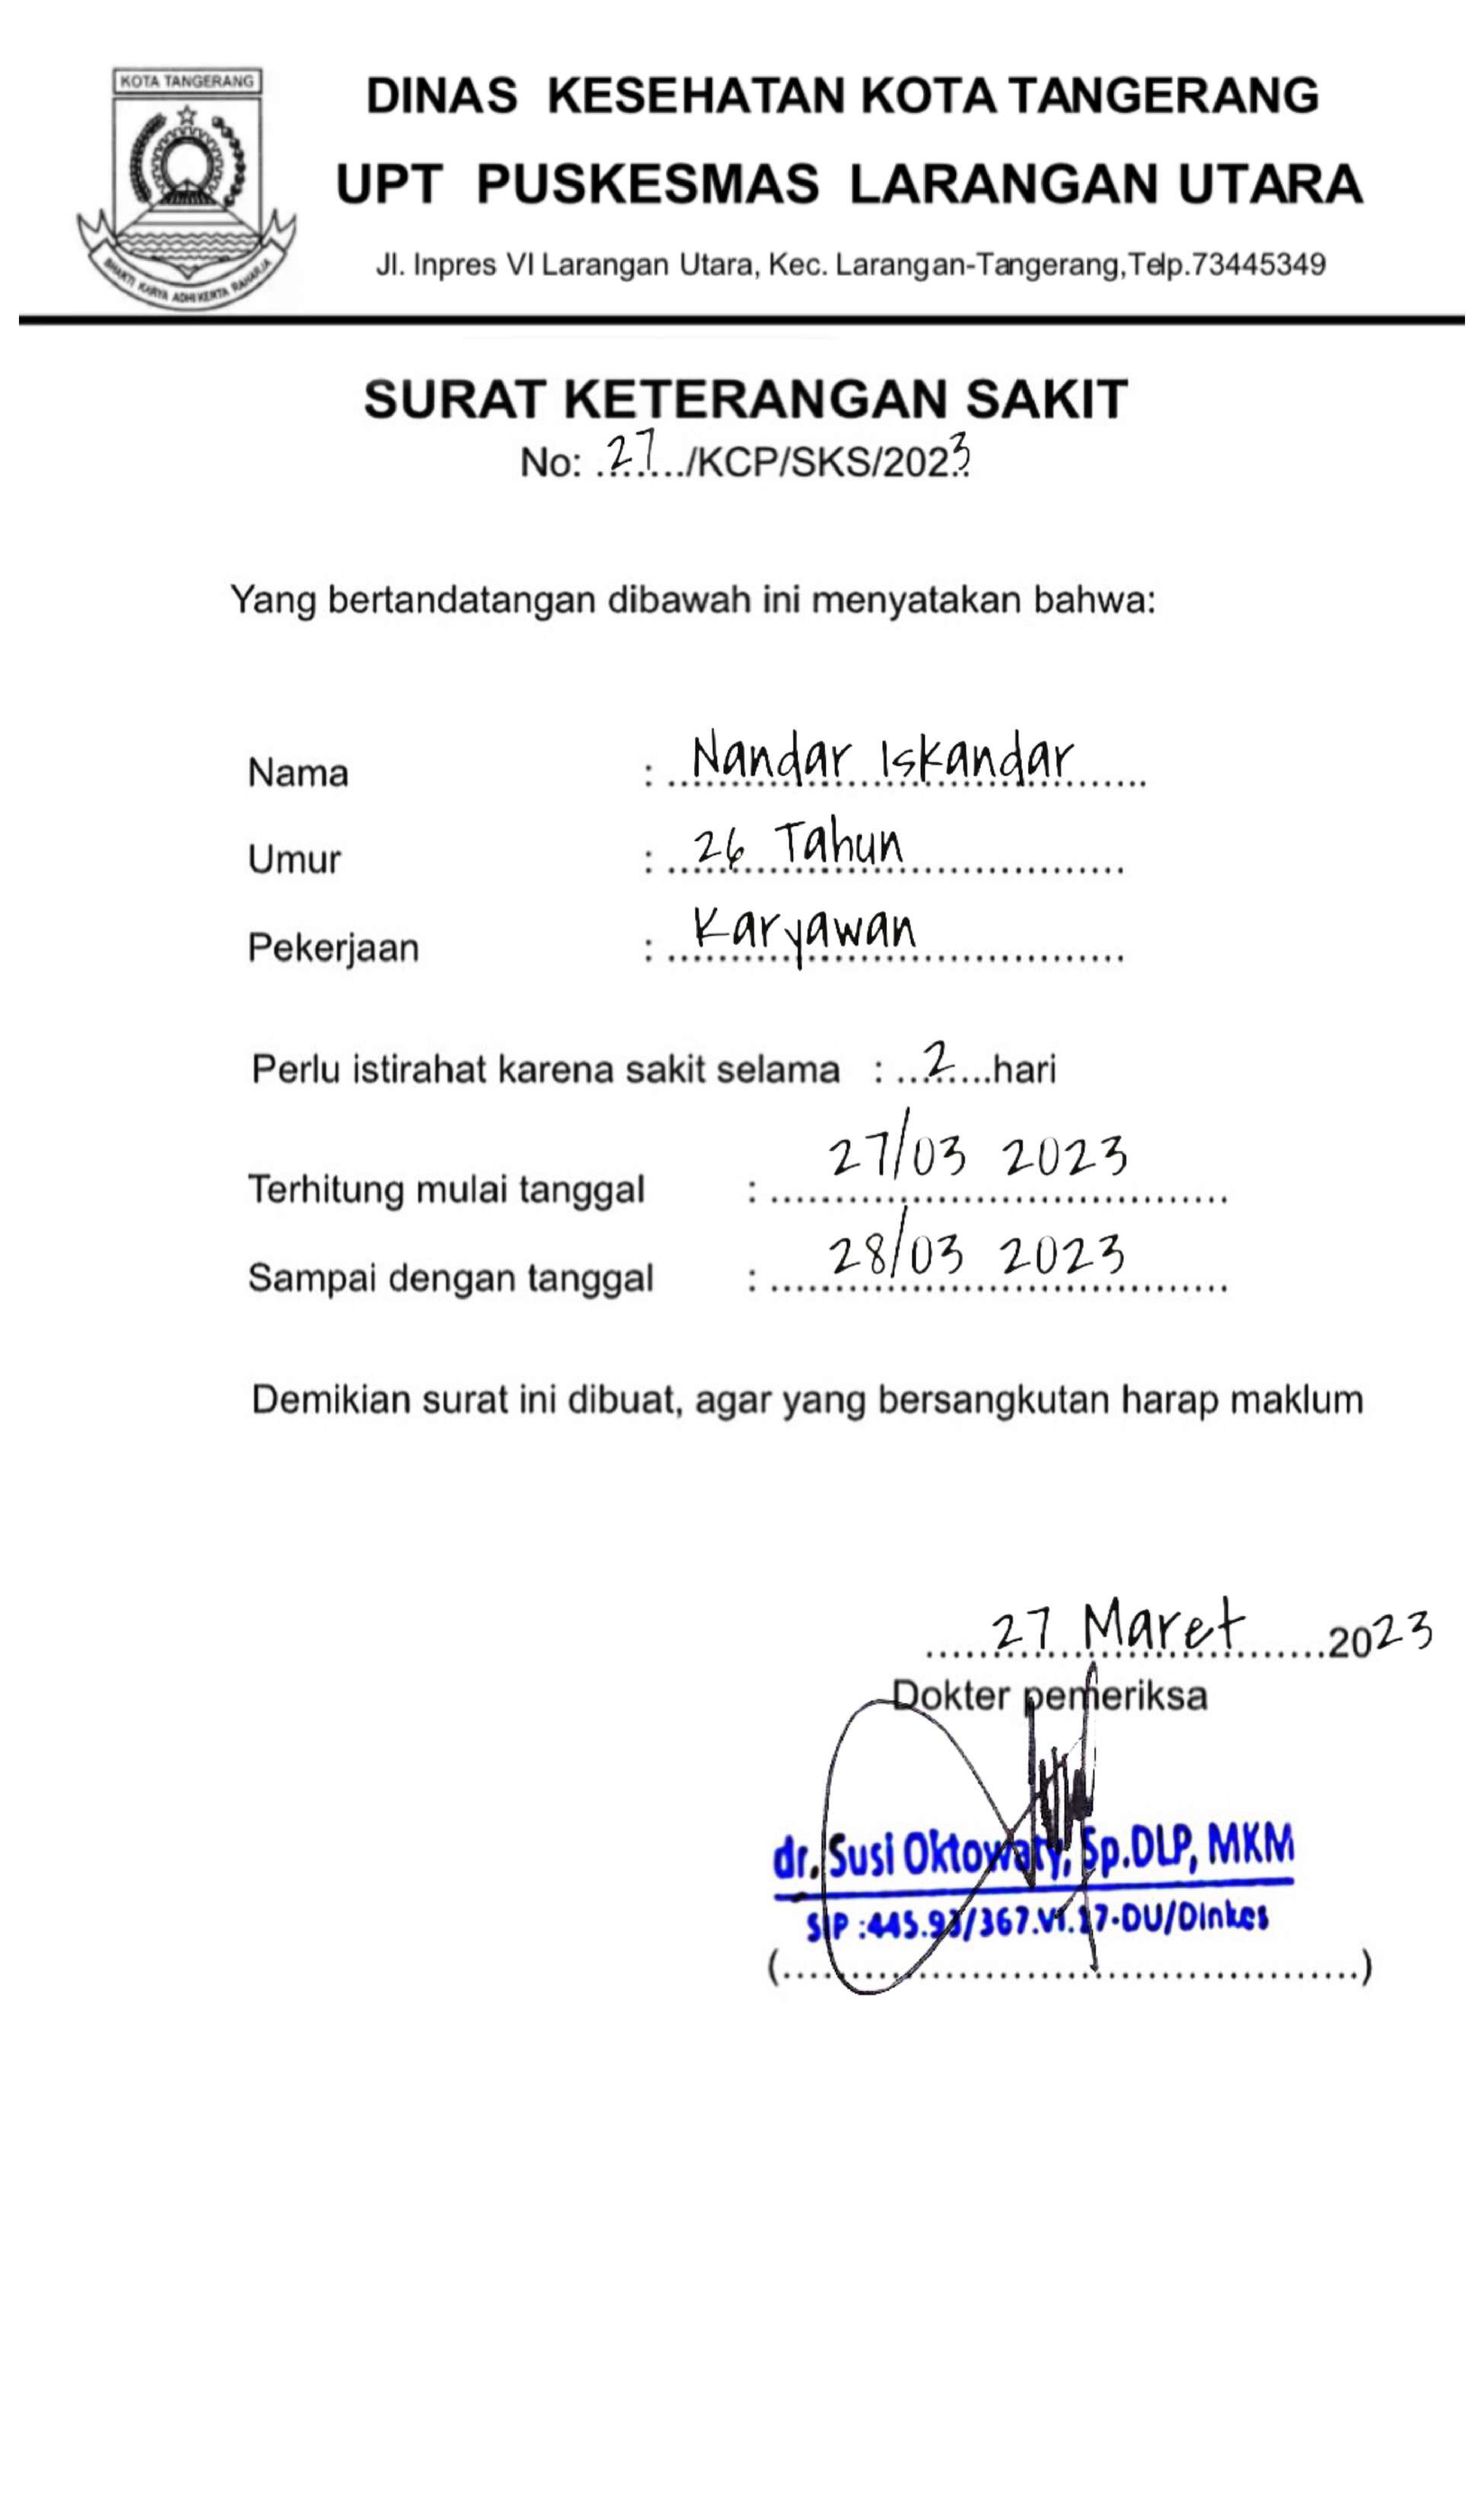 KOTA TANGERANG
BHAKTI KARYA ADHI KERTA RAHARJA
DINAS KESEHATAN KOTA TANGERANG
UPT PUSKESMAS LARANGAN UTARA
Jl. Inpres VI Larangan Utara, Kec. Larangan-Tangerang,Telp.73445349
SURAT KETERANGAN SAKIT
No: ..27.../KCP/SKS/2023
Yang bertandatangan dibawah ini menyatakan bahwa:
Nama : Nandar Iskandar
Umur : 26 Tahun
Pekerjaan : Karyawan
Perlu istirahat karena sakit selama : ...2...hari
Terhitung mulai tanggal : 27/03 2023
Sampai dengan tanggal : 28/03 2023
Demikian surat ini dibuat, agar yang bersangkutan harap maklum
.....27 Maret.....2023
Dokter pemeriksa
dr. Susi Oktowaty, Sp.DLP, MKM
SIP :445.93/367.VI.17-DU/Dinkes
(..............................................)